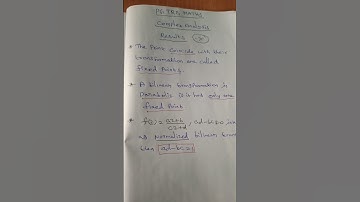 PG TRB MATHS
Complex Analysis
Results
* The Points Coincide with their
transformation are called
fixed Points.
* A bilinear transformation is
Parabolic it has only one
fixed Point
* f(z) = az+b/cz+d, ad-bc≠0 is
normalized bilinear
when ad-bc=1